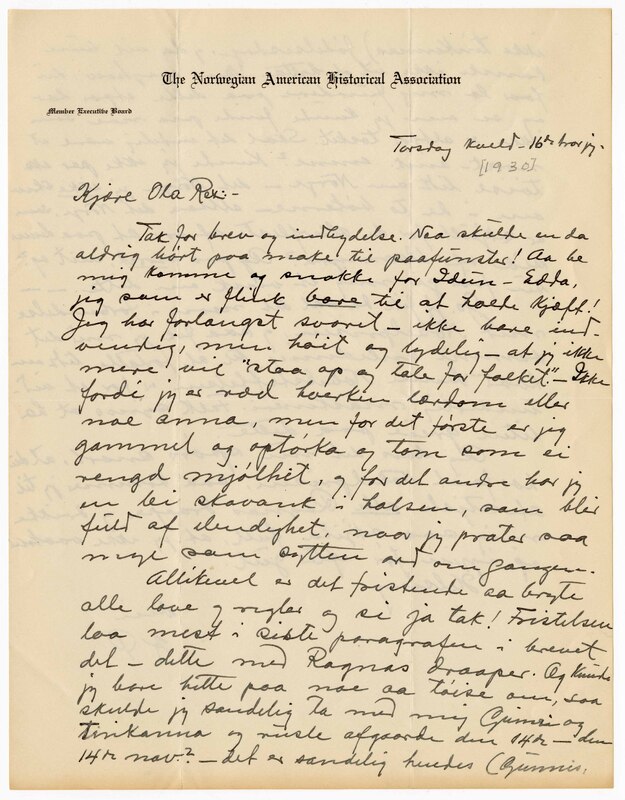 The Norwegian American Historical Association
Member Executive Board
Torsdag kveld - 16de
[1930]
Kjære Ola Rex:-
Tak for brev og indbydelse. Naa skulde en da
aldrig hørt paa make til paafunster! Aa be
mig komme og snakke for Idun - Edda,
jeg som er flink bare til at holde kjæft!
Jeg har forlangst svoret - ikke bare ind-
vendig, men høit og lydelig - at jeg ikke
mere vil "staa op og tale for folket." - Ikke
fordi jeg er ræd hverken lærdom eller
noe anna, men for det første er jeg
gammel og optørka og tom som ei
rengd mjølhit, og for det andre har jeg
en lei skavank i halsen, som blir
fuld af elendighet, naar jeg prater saa
mye som sytten ord om gangen.
Allikevel er det fristende aa bryte
alle love og regler og si ja tak! Fristelsen
laa mest i siste paragrafen i brevet
det - dette med Ragnas draaper. Og kunde
jeg bare hitte paa noe aa tøise om, saa
skulde jeg sandelig ta med mig Gunni og
tinkanna og rusle afgaarde den 14de - den
14de nov.? - det er sandelig hendes (Gunnis,